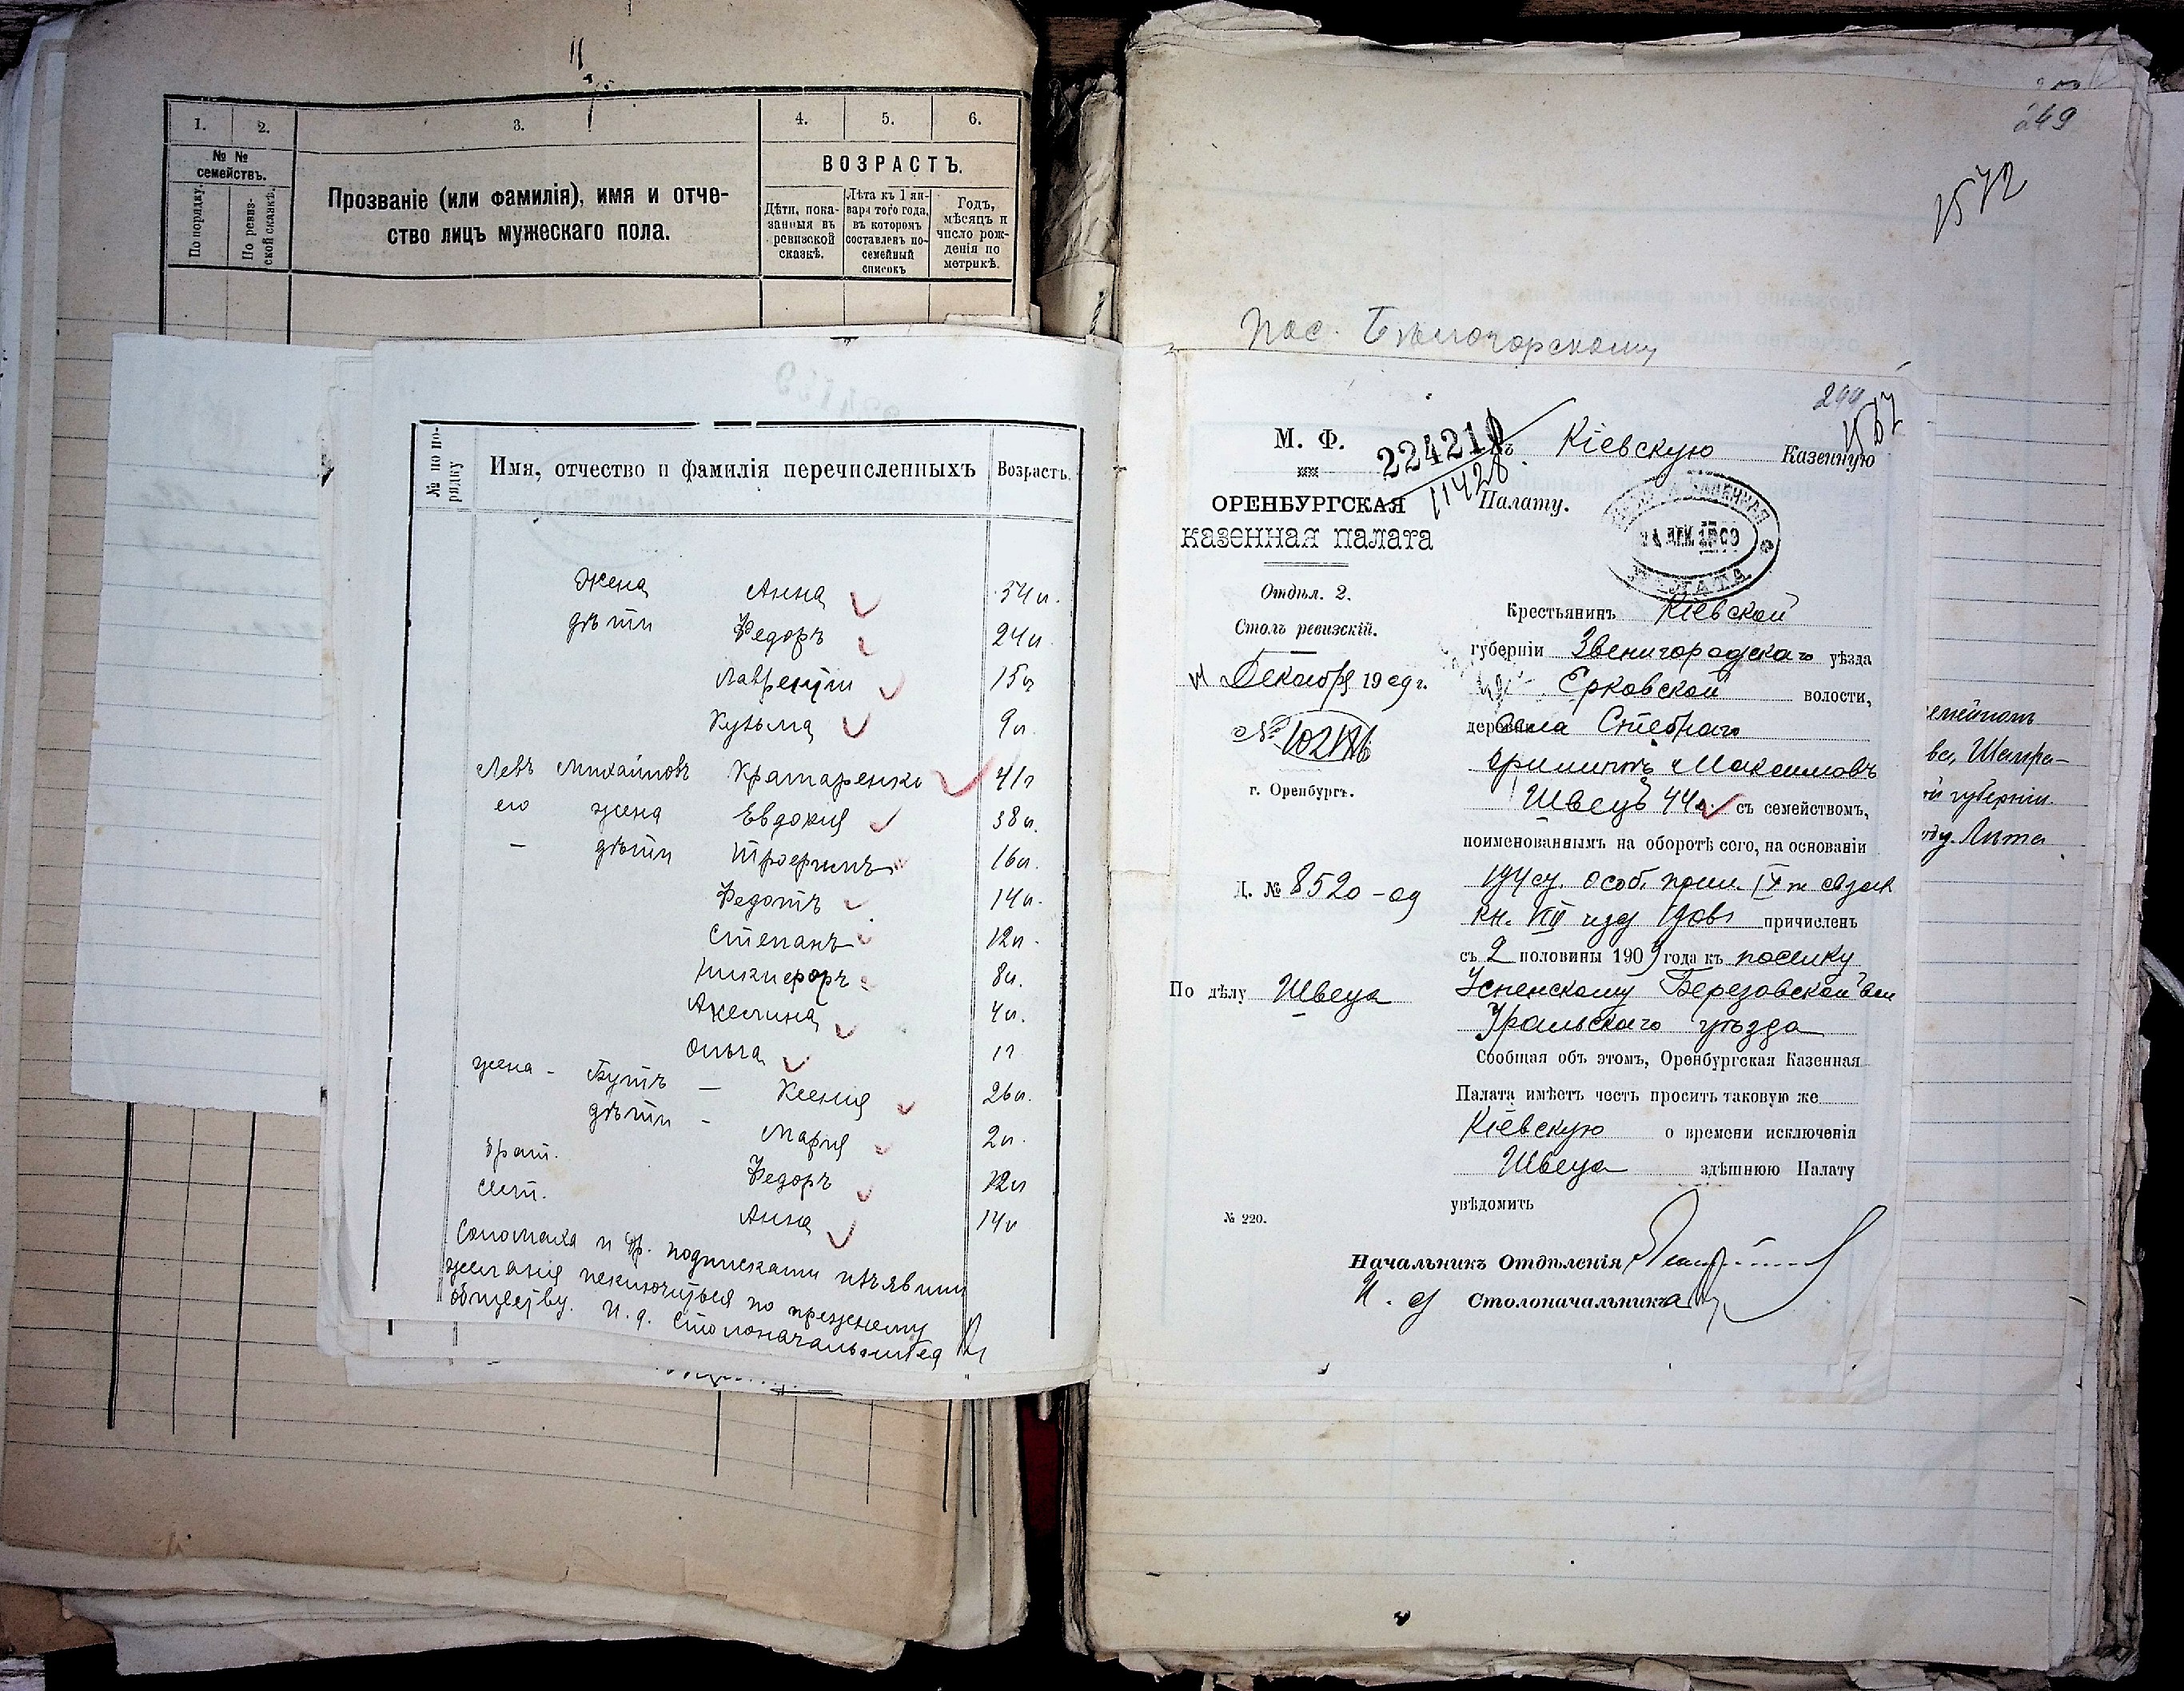 1. 2. 3. 4. 5. 6.
№ № семействъ.
По порядку.
По ревизской сказкѣ.
Прозваніе (или фамилія), имя и отче-
ство лицъ мужескаго пола.
ВОЗРАСТЪ.
Дѣти, пока-
занныя въ
ревизской
сказкѣ.
Лѣта къ 1 ян-
варя того года,
въ которомъ
составленъ по-
семейный
списокъ
Годъ,
мѣсяцъ и
число рож-
денія по
метрикѣ.
№ по по-
рядку
Имя, отчество и фамилія перечисленныхъ
Возрастъ.
жена Анна 34 л.
дѣти Федоръ 24 л
Лаврентій 15 л
Кузьма 9 л
Левъ Михайловъ Крамаренко 41 г
его жена Евдокія 38 л.
– дѣти Трофимъ 16 л.
Федотъ 14 л.
Степанъ 12 л.
Никифоръ 8 л.
Акилина 4 л.
Ольга 1 г
жена – Бутъ – Ксенія 26 л.
дѣти – Марія 2 л.
брат. Федоръ 12 л
сест. Анна 14 л
Соломаха и др. подписками изъявили
желаніе исключиться по прежнему
обществу. И. д. Столоначальника
249
1572
пос. Бѣлогорскому
244
1567
М. Ф.
224210
11428
Кіевскую Казенную
Палату.
ОРЕНБУРГСКАЯ
КАЗЕННАЯ ПАЛАТА
КАЗЕННАЯ
ДЕК 1909
ПАЛАТА
Отдѣл. 2.
Столъ ревизскій.
Декабря 1909 г.
№
г. Оренбургъ.
Д. № 8520-09
По дѣлу Швеца
Крестьянинъ Кіевской
губерніи Звенигородскаго уѣзда
Ерковской волости,
села Стебнаго
Максимовъ
Швецъ 44 л. съ семействомъ,
поименованнымъ на оборотѣ сего, на основаніи
особ.
кн. VIII изд причисленъ
съ 2 половины 1909 года къ поселку
Успенскому Березовской вол
Уральскаго уѣзда
Сообщая объ этомъ, Оренбургская Казенная
Палата имѣетъ честь просить таковую же
Кіевскую о времени исключенія
Швеца здѣшнюю Палату
увѣдомить
№ 220.
Начальникъ Отдѣленія
И. д Столоначальника
ва, Шампра-
ой губерніи.
Лѣта